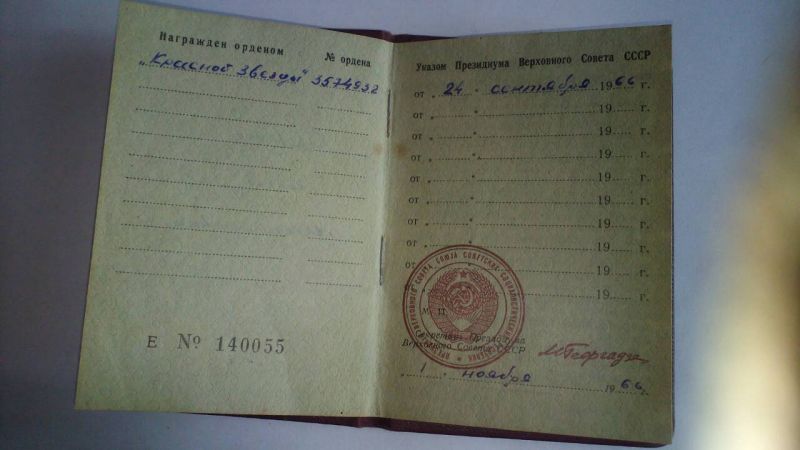 Награжден орденом № ордена
„Красной Звезды" 3574932
Е № 140055
Указом Президиума Верховного Совета СССР
от „ 24 " сентября 1966 г.
от „ " 19 г.
от „ " 19 г.
от „ " 19 г.
от „ " 19 г.
от „ " 19 г.
от „ " 19 г.
от „ " 19 г.
от „ " 19 г.
19 г.
М. П.
Секретарь Президиума
Верховного Совета СССР
МГеоргадзе
„ 1 " ноября 1966